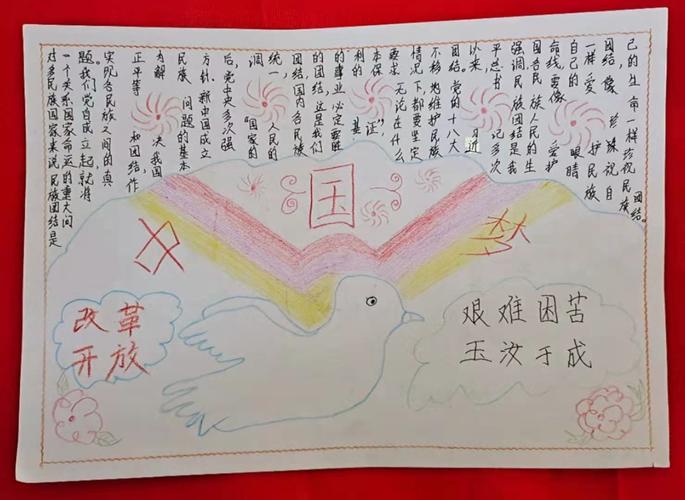 对多民族国家来说民族团结是
一个关系国家命运的重大问
题我们党自成立起就将
实现各民族之间的真
正平等 和团结,作
为解 决我国
民族 问题的基本
方针.新中国成立
后,党中央多次强
调 “国家的
统一 人民的
团结,国内各民族
的团结,这是我们
的事业必定要胜
利的 基
本保 证”,
要求 无论在什么
情况下都要坚定
不移地维护民族
团结.党的十八大
以来 习近
平总书 记多次
强调民族团结是我
国各民族人民的生
命线,要像 爱护
自己的 眼睛
一样爱 护民族
团结像 珍视自
己的生命一样珍视民族团结。
国
梦
改革
开放
艰难困苦
玉汝于成